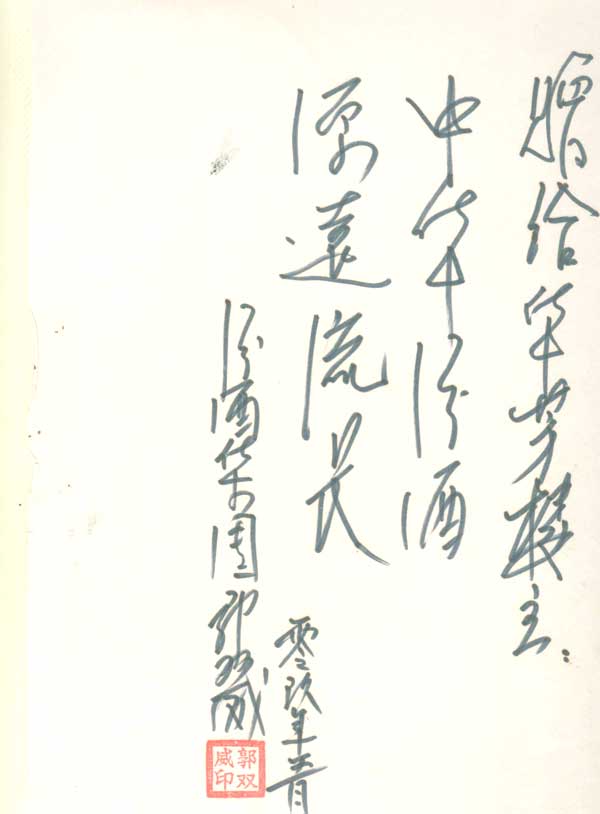 赠给华芳楼主:
中华汾酒
源远流长
汾酒集团 郭双威
零玖年五月
郭双
威印